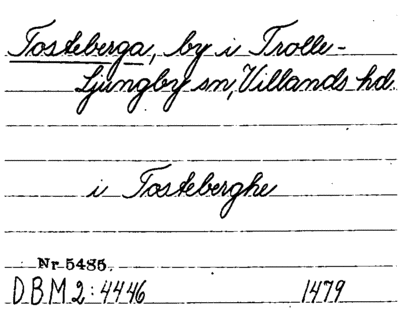 Tosteberga, by i Trolle-
Ljungby sn, Villands hd.
i Tosteberghe
Nr 5485.
DBM 2:4446 1479